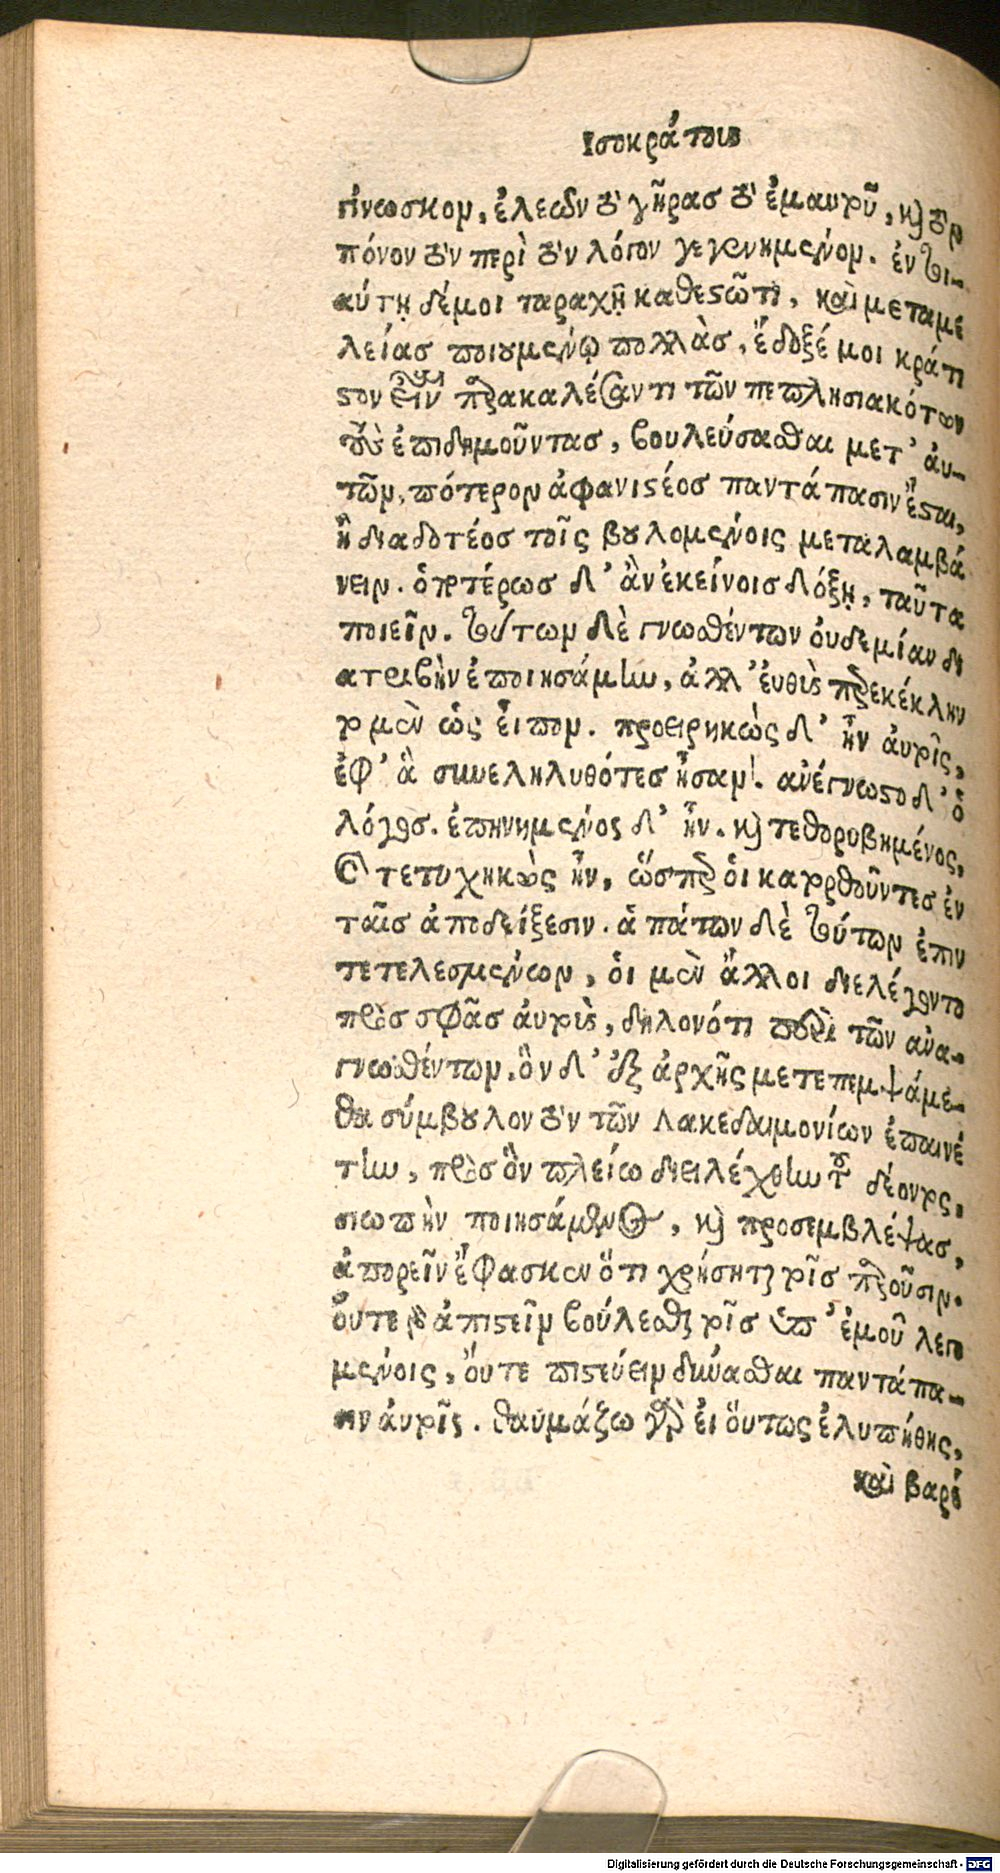 Ισοκράτους
γίνωσκον, ἐλεῶν τὸ γῆρας τὸ ἐμαυτοῦ, καὶ τὸν
πόνον τὸν περὶ τὸν λόγον γεγενημένον. ἐν τοι-
αύτῃ δέ μοι ταραχῇ καθεστῶτι, καὶ μεταμε
λείας ποιουμένῳ πολλὰς, ἔδοξέ μοι κράτι
στον εἶναι παρακαλέσαντι τῶν πεπλησιακότων
τοὺς ἐπιδημοῦντας, βουλεύσασθαι μετ' ἀυ-
τῶν, πότερον ἀφανιστέος παντάπασιν ἔσται,
ἢ διαδοτέος τοῖς βουλομένοις μεταλαμβά
νειν. ὁποτέρως δ' ἂν ἐκείνοις δόξῃ, ταῦτα
ποιεῖν. τούτων δὲ γνωσθέντων ὀυδεμίαν δι
ατριβὴν ἐποιησάμην, ἀλλ' ἐυθὺς παρεκέκλην
το μὲν ὡς εἶπον. προειρηκὼς δ' ἦν ἀυτοῖς,
ἐφ' ἃ συνεληλυθότες ἦσαν. ἀνέγνωστο δ' ὁ
λόγος. ἐπῃνημένος δ' ἦν. καὶ τεθορυβημένος,
καὶ τετυχηκὼς ἦν, ὥσπερ ὁι κατορθοῦντες ἐν
ταῖς ἀποδείξεσιν. ἁπάτων δὲ τούτων ἐπιν
τετελεσμένων, ὁι μὲν ἄλλοι διελέγοντο
πρὸς σφᾶς ἀυτοὺς, δηλονότι περὶ τῶν ἀνα-
γνωσθέντων. ὃν δ' ἐξ ἀρχῆς μετεπεμψάμε-
θα σύμβουλον τὸν τῶν Λακεδαιμονίων ἐπαινέ
την, πρὸς ὃν πλείω διειλέχθην τοῦ δέοντος,
σιωπὴν ποιησάμενος, καὶ προσεμβλέψας,
ἀπορεῖν ἔφασκεν ὅτι χρήσηται τοῖς παροῦσιν.
ὄυτε γὰρ ἀπιστεῖν βούλεσθαι τοῖς ὑπ' ἐμοῦ λεγο
μένοις, ὄυτε πιστεύειν δύνασθαι παντάπα-
σιν ἀυτοῖς. θαυμάζω γὰρ ἐι ὅυτως ἐλυπήθης,
καὶ βαρέ
Digitalisierung gefördert durch die Deutsche Forschungsgemeinschaft - DFG